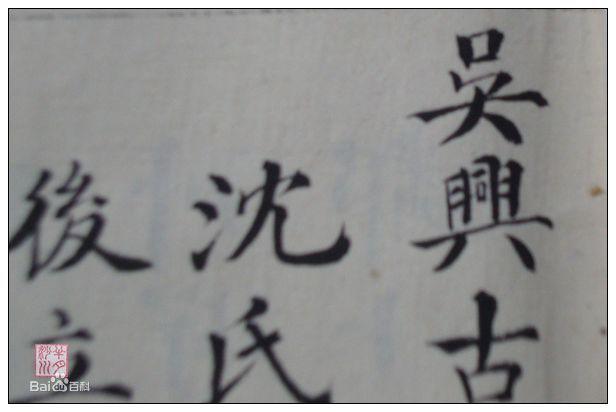 吳興古
沈氏
後立
Bai百科